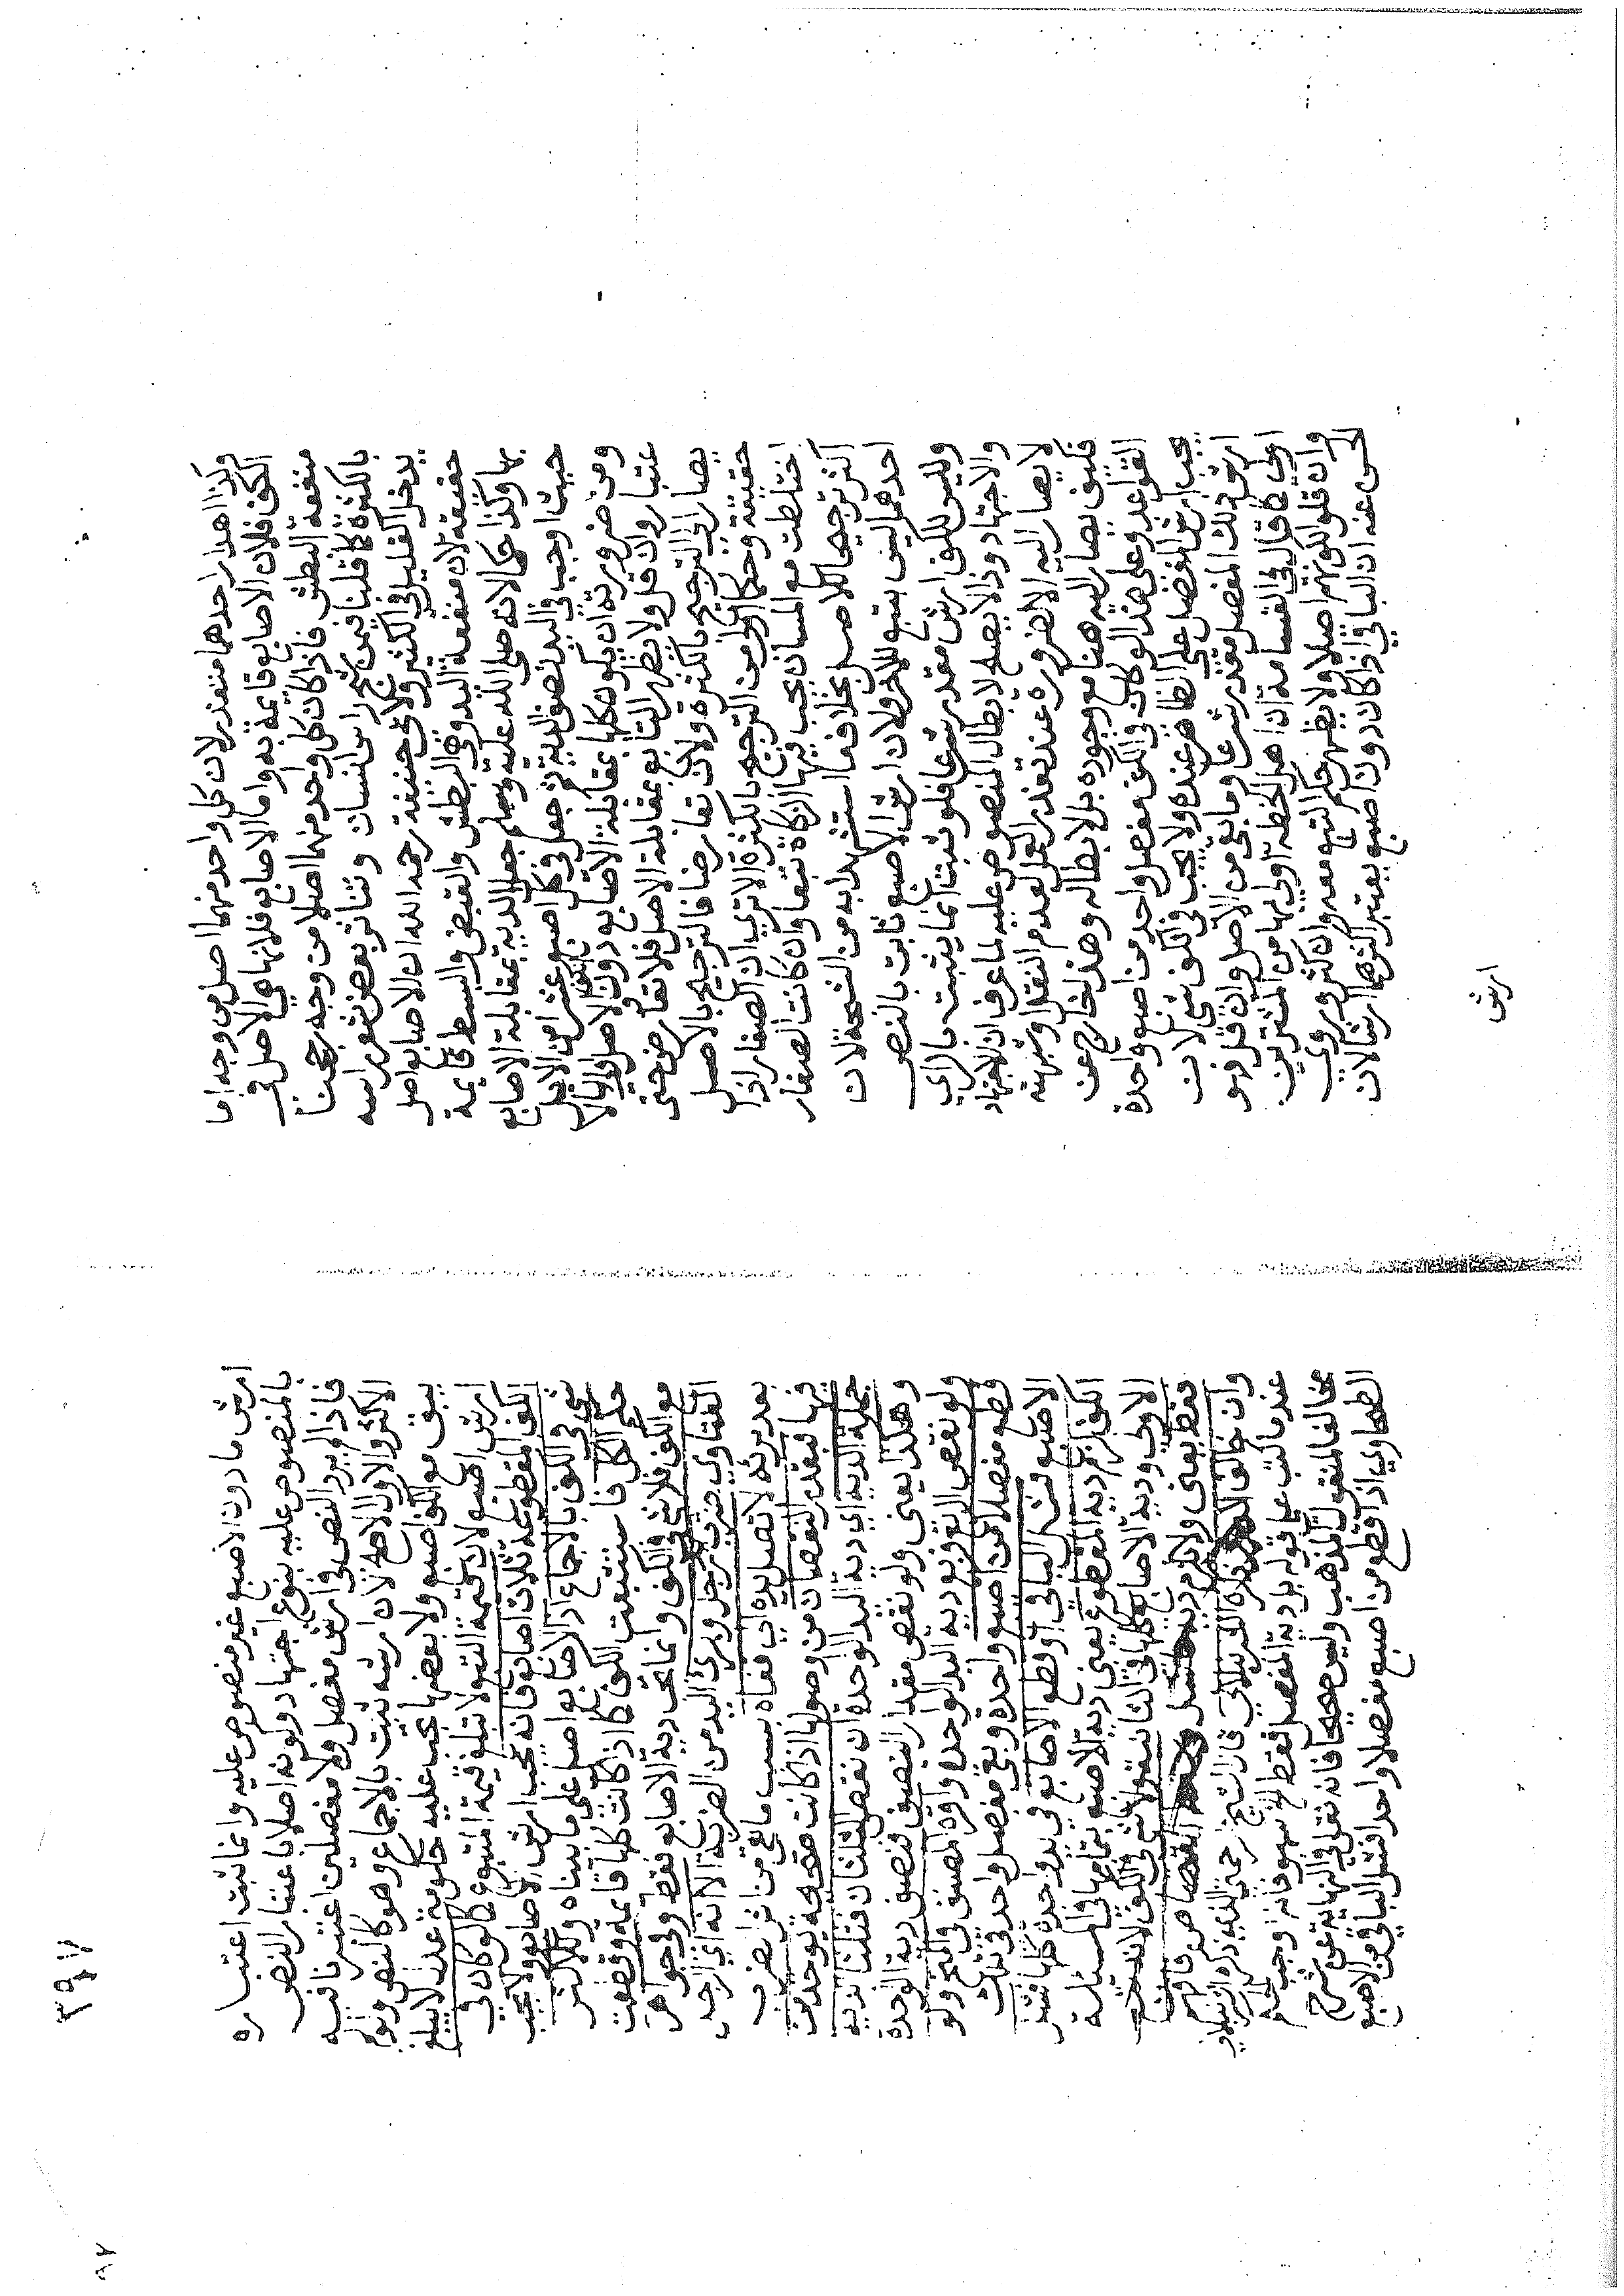 وكذا اهدار احدهما متعذر لان كل واحد منهما اصل من وجه اما
الكف فلان الاصابع قايمة به واما الاصابع فلانها هي الاصل في
منفعة البطش فاذا كان كل واحد منهما اصلا من وجه رجحنا
بالكثرة كما قلنا فيمن شج راس انسان وتناثر بعض شعر راسه
يدخل القليل في الكثير ولابي حنيفة رحمه الله ان الاصابع اصل
حقيقة لان منفعة اليد وهي البطش والقبض والبسط قايمة
بها وكذا حكما لانه صلى الله عليه وسلم جعل الدية بمقابلة الاصابع
حيث اوجب في اليد نصف الدية ثم جعل في كل اصبع عشرا من الابل
ومن ضرورته ان يكون كلها بمقابلة الاصابع دون الكف والاصل اولى بالا
عتبار وان قل ولا يظهر التابع بمقابلة الاصل فلا تعارض حتى
يصار الى الترجيح بالكثرة ولان تعارضا فالترجيح بالاصل
حقيقة وحكما اولى من الترجيح بالكثرة الا ترى ان الصغار اذا
اختلطت مع المسان يجب فيها الزكاة تبعا وان كانت الصغار
اكثر ترجيحا للاصل بخلاف ما استشهدا به من الشجة لان
احدهما ليس بتبع للاخر ولان ارش الاصبع ثابت بالنص
وليس للكف ارش مقدر شرعا فلو ثبت انما يثبت بالراي
والاجتهاد وذا لا يصلح لابطال المنصوص عليه لما عرف ان الاجتهاد
لا يصار اليه الا لضرورة عند تعذر العمل لعدم النقل وشبهته
فكيف يصار اليه هنا مع وجوده بل لا بطاله وهذا خارج عن
القواعد وعلى هذا لو كان في الكف مفصل واحد من اصبع واحدة
يجب ارش المفصل على الظاهر عنده ولا يجب في الكف شي لان
ارش ذلك المفصل مقدر شرعا وما بقي من الاصل وان قل فهو
اولى كما قال في القسامة ان اهل الخطة اولى بها من المشترين
وان قلوا لكونهم اصلا ولا يظهر حكم التبع معه وان كثر وروي
الحسن عنه ان الباقي اذا كان دون اصبع يعتبر اكثرهما ارشا لان
ارش
ارش ما دون الاصبع غير منصوص عليه وانما ثبت اعتباره
بالمنصوص عليه بنوع اجتهاد وكونه اصلا باعتبار النص
فاذا لم يرد النص في ارش مفصل ولا مفصلين اعتبرنا فيه
الاكثر والاول الاصح لان ارشه ثبت بالاجماع وهو كالنص ولو لم
يبق مع الكف اصبع ولا بعضها يجب عليه حكومة عدل لا يبلغ
ارش اصبع لان قيمة التبع لا تبلغ قيمة المتبوع كما لو كان في
الكف المقطوعة ثلاث اصابع فانه يجب ارش الاصابع ولا يجب
شي في الكف بالاجماع اذ الاصابع اصل على ما بيناه وللاكثر
حكم الكل فاستتبعت الكف كما اذا كانت كلها قايمة وقطعت
مع الكف فلا شي في الكف وانما تجب دية الاصابع فقط وفي جواهر
الفتاوى ضرب يد رجل وبرئ اليد من الضربة الا انه اي الرجل
بعد برئه لا تصل يده الى قفاه بسبب ما بقي من اثر الضرب
فيها فبقدر النقصان من وصولها اذا كانت صحيحة يوخذ من
جملة الدية اي دية اليد الواحدة ان نقص الثلثان فثلثا ديه
وهكذا يعني ولو نقص مقدار النصف فنصف دية الواحدة
ولو نقص الربع فربع دية اليد الواحدة واقره المصنف في المنح ولو
قطع مفصلا من اصبع واحدة وبقي مفصل واحد في تلك
الاصبع فشل الباقي او قطع الاصابع في يد واحدة كلها فشل
الكف لزم دية المقطوع يعني دية الاصبع بتمامها في المسئلة
الاولى ودية الاصابع كلها في الثانية ولا شي في الكف لانه تبع
فقط يعني ولا تلزم دية القصاص فافهم
وان خالف الدرر ذكره الشرنبلالي قال الشيخ رحمتي الذي ذكره الشرنبلالي
عندما كتب على قوله بل دية المفصل فقط الخ سهو فانه وجب لحكم
مخالف المنقول المذهب وليس صحيحا فانه نقل في النهاية عن شرح
الطحاوي اذا قطع من اصبع مفصلا واحدا فشل الباقي من الاصبع
٣٩٧